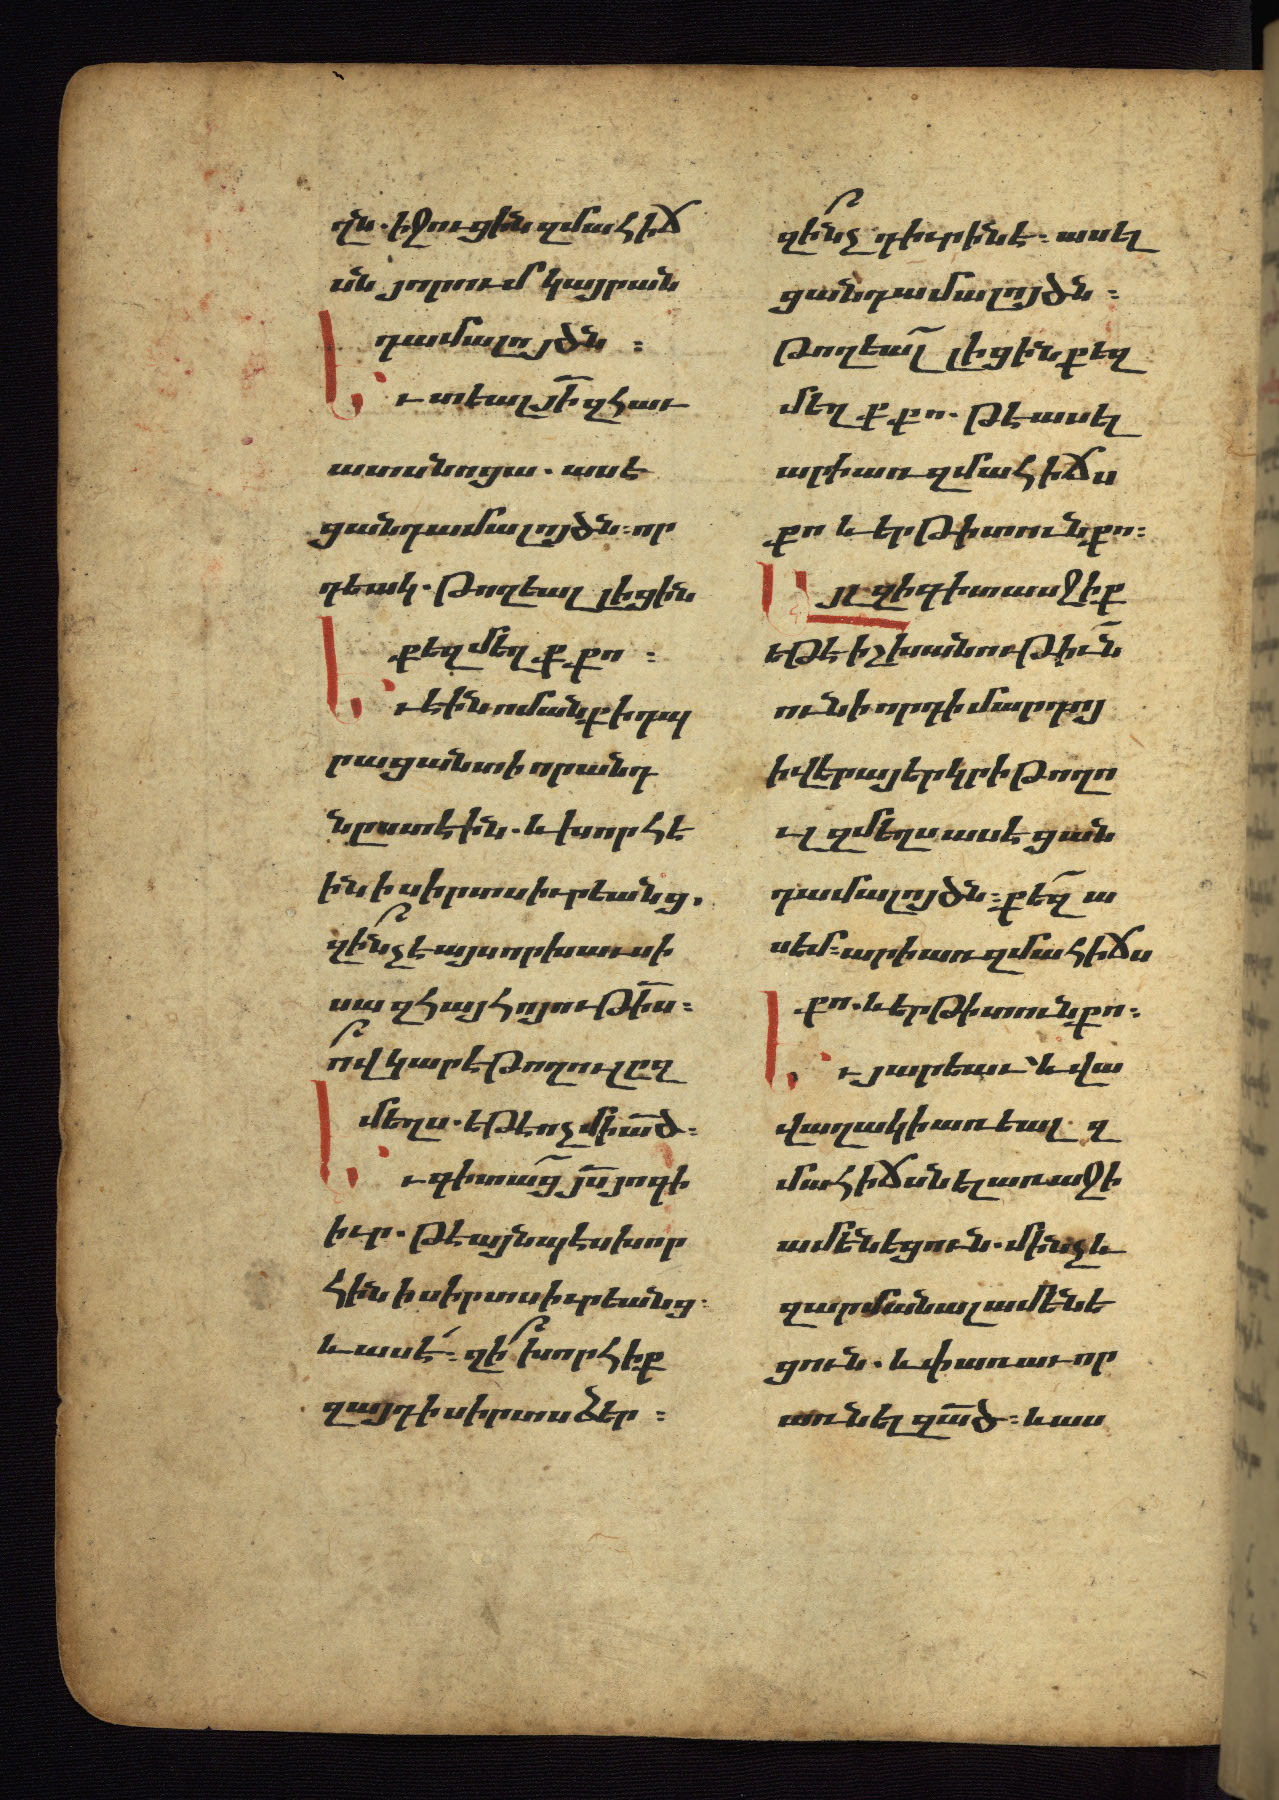 ղն. իջուցին զմահիճ
սն յորում կայր ան
դամալոյծն ։
Ւ տեալ յի զհաւ
ատս նոցա. ասէ
ցանդամալոյծն։ որ
դեակ. թողեալ լիցին
քեզ մեղ ք քո ։
Ւ էին ոմանք ի դպ
րացն անտի որ անդ
նըստէին. և խորհէ
ին ի սիրտս իւրեանց.
զի՞նչ է այս որ խաւսի
սա զհայհոյութիս։
ո՞վ կարէ թողուլ ըզ
մեղս. եթէ ոչ մի ած։
Ւ գիտաց յս յոգի
իւր. թէ այնպէս խոր
հին ի սիրտս իւրեանց։
և ասէ։ զի՞ խորհիք
զայդ ի սիրտս ձեր ։
զի՞նչ դիւրին է։ ասել
ցանդամալոյծն ։
թողեալ լիցին քեզ
մեղ ք քո. թէ ասել
արի առ զմահիճս
քո և երթ ի տուն քո։
Այլ զի գիտասջիք
եթէ իշխանութիւն
ունի որդի մարդոյ
ի վերայ երկրի թողո
ւլ զմեղս ասէ ցան
դամալոյծն։ քեզ ա
սեմ։ արի առ զմահիճս
քո. և երթ ի տուն քո։
Ւ յարեաւ և վա
վաղակի առեալ զ
մահիճսն ել առաջի
ամենեցուն. մինչև
զարմանալ ամենե
ցուն. և փառաւոր
առնել զած։ և աս